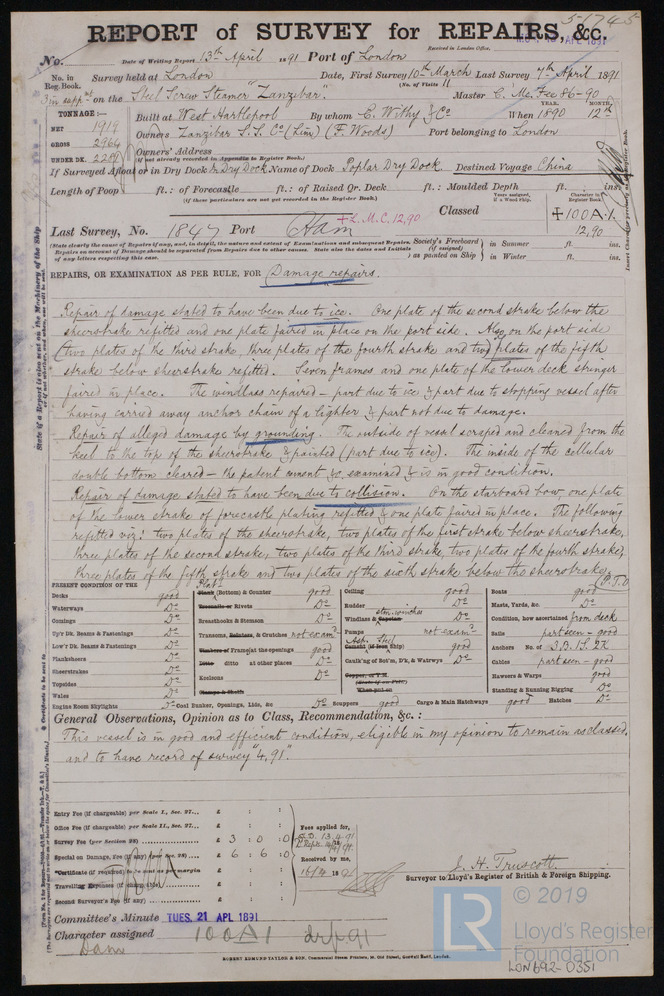 51745
REPORT of SURVEY for REPAIRS, &c.
Received in London Office,
No. Date of Writing Report 13th April 1891 Port of London
No. in Reg. Book. Survey held at London Date, First Survey 10th March Last Survey 7th April 1891
(No. of Visits 11
on the Steel Screw Steamer "Zanzibar" Master C. McFee 86-90
TONNAGE:—
NET 1919
GROSS 2964
UNDER DK. 2289
Built at West Hartlepool By whom E. Withy & Co When 1890 YEAR. MONTH. 12th
Owners Zanzibar S.S. Co (Lim) (F. Woods) Port belonging to London
Owners' Address
(if not already recorded in Appendix to Register Book.)
If Surveyed Afloat or in Dry Dock In Dry Dock Name of Dock Poplar Dry Dock Destined Voyage China
Length of Poop ft.: of Forecastle ft.: of Raised Qr. Deck ft.: Moulded Depth ft. ins.
(if these particulars are not yet recorded in the Register Book.)
Last Survey, No. 1847 Port Ham +L.M.C. 12,90 Classed +100A1 12,90
Society's Freeboard (if assigned) as painted on Ship in Summer ft. ins.
in Winter ft. ins.
REPAIRS, OR EXAMINATION AS PER RULE, FOR Damage repairs.
Repair of damage stated to have been due to ice. One plate of the second strake below the
sheerstrake refitted and one plate faired in place on the port side. Also on the port side
two plates of the third strake, three plates of the fourth strake and two plates of the fifth
strake below sheerstrake refitted. Seven frames and one plate of the lower deck stringer
faired in place. The windlass repaired - part due to ice & part due to stopping vessel after
having carried away anchor chain of a lighter & part not due to damage.
Repair of alleged damage by grounding. The outside of vessel scraped and cleaned from the
keel to the top of the sheerstrake & painted (part due to ice). The inside of the cellular
double bottom cleared - the patent cement &c examined & is in good condition.
Repair of damage stated to have been due to collision. On the starboard bow one plate
of the lower strake of forecastle plating refitted & one plate faired in place. The following
refitted viz: two plates of the sheerstrake, two plates of the first strake below sheerstrake,
three plates of the second strake, two plates of the third strake, two plates of the fourth strake,
three plates of the fifth strake and two plates of the sixth strake below the sheerstrake. (P.T.O
PRESENT CONDITION OF THE
Decks good
Waterways Do
Comings Do
Up'r Dk. Beams & Fastenings Do
Low'r Dk. Beams & Fastenings Do
Planksheers Do
Sheerstrakes Do
Topsides Do
Wales Do
Engine Room Skylights Do
Plank (Bottom) & Counter good
Treenails or Rivets Do
Breasthooks & Stemson Do
Transoms, Pointers, & Crutches not exam.d
Timbers of Frame at the openings good
Ditto ditto at other places Do
Keelsons Do
Clamps & Shelfs
Coal Bunker, Openings, Lids, &c Do
Ceiling good
Rudder Do
Windlass & Capstan Do
Pumps not exam.d
good
Caulk'ng of Bot'm, D'k, & Watrwys Do
Copper, or Y.M.
When put on
Scuppers good
Cargo & Main Hatchways good
Boats good
Masts, Yards, &c. Do
Condition, how ascertained from deck
Sails part seen - good
Anchors No. of 3B.1S.2K
Cables part seen - good
Hawsers & Warps good
Standing & Running Rigging Do
Hatches Do
General Observations, Opinion as to Class, Recommendation, &c.:
This vessel is in good and efficient condition, eligible in my opinion to remain as classed,
and to have record of survey "4,91".
Entry Fee (if chargeable) per Scale I., Sec. 27... £ : :
Office Fee (if chargeable) per Scale II., Sec. 27... £ : :
Survey Fee (per Section 28) £ 3 : 0 : 0
Special on Damage, Fee (if any) £ 6 : 6 : 0
Travelling Expenses (if chargeable) £ : :
Second Surveyor's Fee (if any) £ : :
Fees applied for,
Received by me,
J. H. Truscott
Surveyor to Lloyd's Register of British & Foreign Shipping.
Committee's Minute TUES. 21 APL 1891
Character assigned 100A1
ROBERT EDMUND TAYLOR & SON, Commercial Steam Printers, 19, Old Street, Goswell Road, London.
LR
© 2019
Lloyd's Register
Foundation
LON692-0351